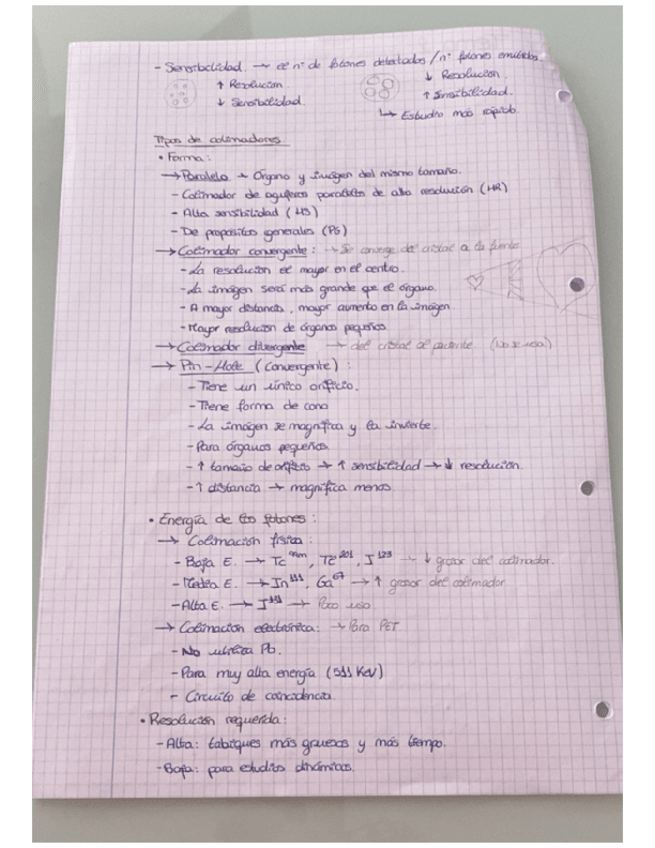 - Sensibilidad. → el nº de fotones detectados / nº fotones emitidos.
↑ Resolución.
↓ Sensibilidad.
↓ Resolución.
↑ Sensibilidad.
↳ Estudio más rápido.
Tipos de colimadores
• Forma:
→ Paralelo → Órgano y imagen del mismo tamaño.
- Colimador de agujeros paralelos de alta resolución (HR)
- Alta sensibilidad (HS)
- De propósitos generales (PG)
→ Colimador convergente: → Se converge del cristal a la fuente
- La resolución es mayor en el centro.
- La imagen será más grande que el órgano.
- A mayor distancia, mayor aumento en la imagen.
- Mayor resolución de órganos pequeños.
→ Colimador divergente → del cristal al paciente (No se usa)
→ Pin-Hole (Convergente):
- Tiene un único orificio.
- Tiene forma de cono
- La imagen se magnifica y la invierte.
- Para órganos pequeños.
- ↑ tamaño de orificio → ↑ sensibilidad → ↓ resolución.
- ↑ distancia → magnifica menos.
• Energía de los fotones:
→ Colimación física:
- Baja E. → Tc⁹⁹ᵐ, Tl²⁰¹, I¹²³ → ↓ grosor del colimador.
- Media E. → In¹¹¹, Ga⁶⁷ → ↑ grosor del colimador
- Alta E. → I¹³¹ → Poco uso
→ Colimación electrónica: → Para PET
- No utiliza Pb.
- Para muy alta energía (511 KeV)
- Circuito de coincidencia.
• Resolución requerida:
- Alta: tabiques más gruesos y más tiempo.
- Baja: para estudios dinámicos.